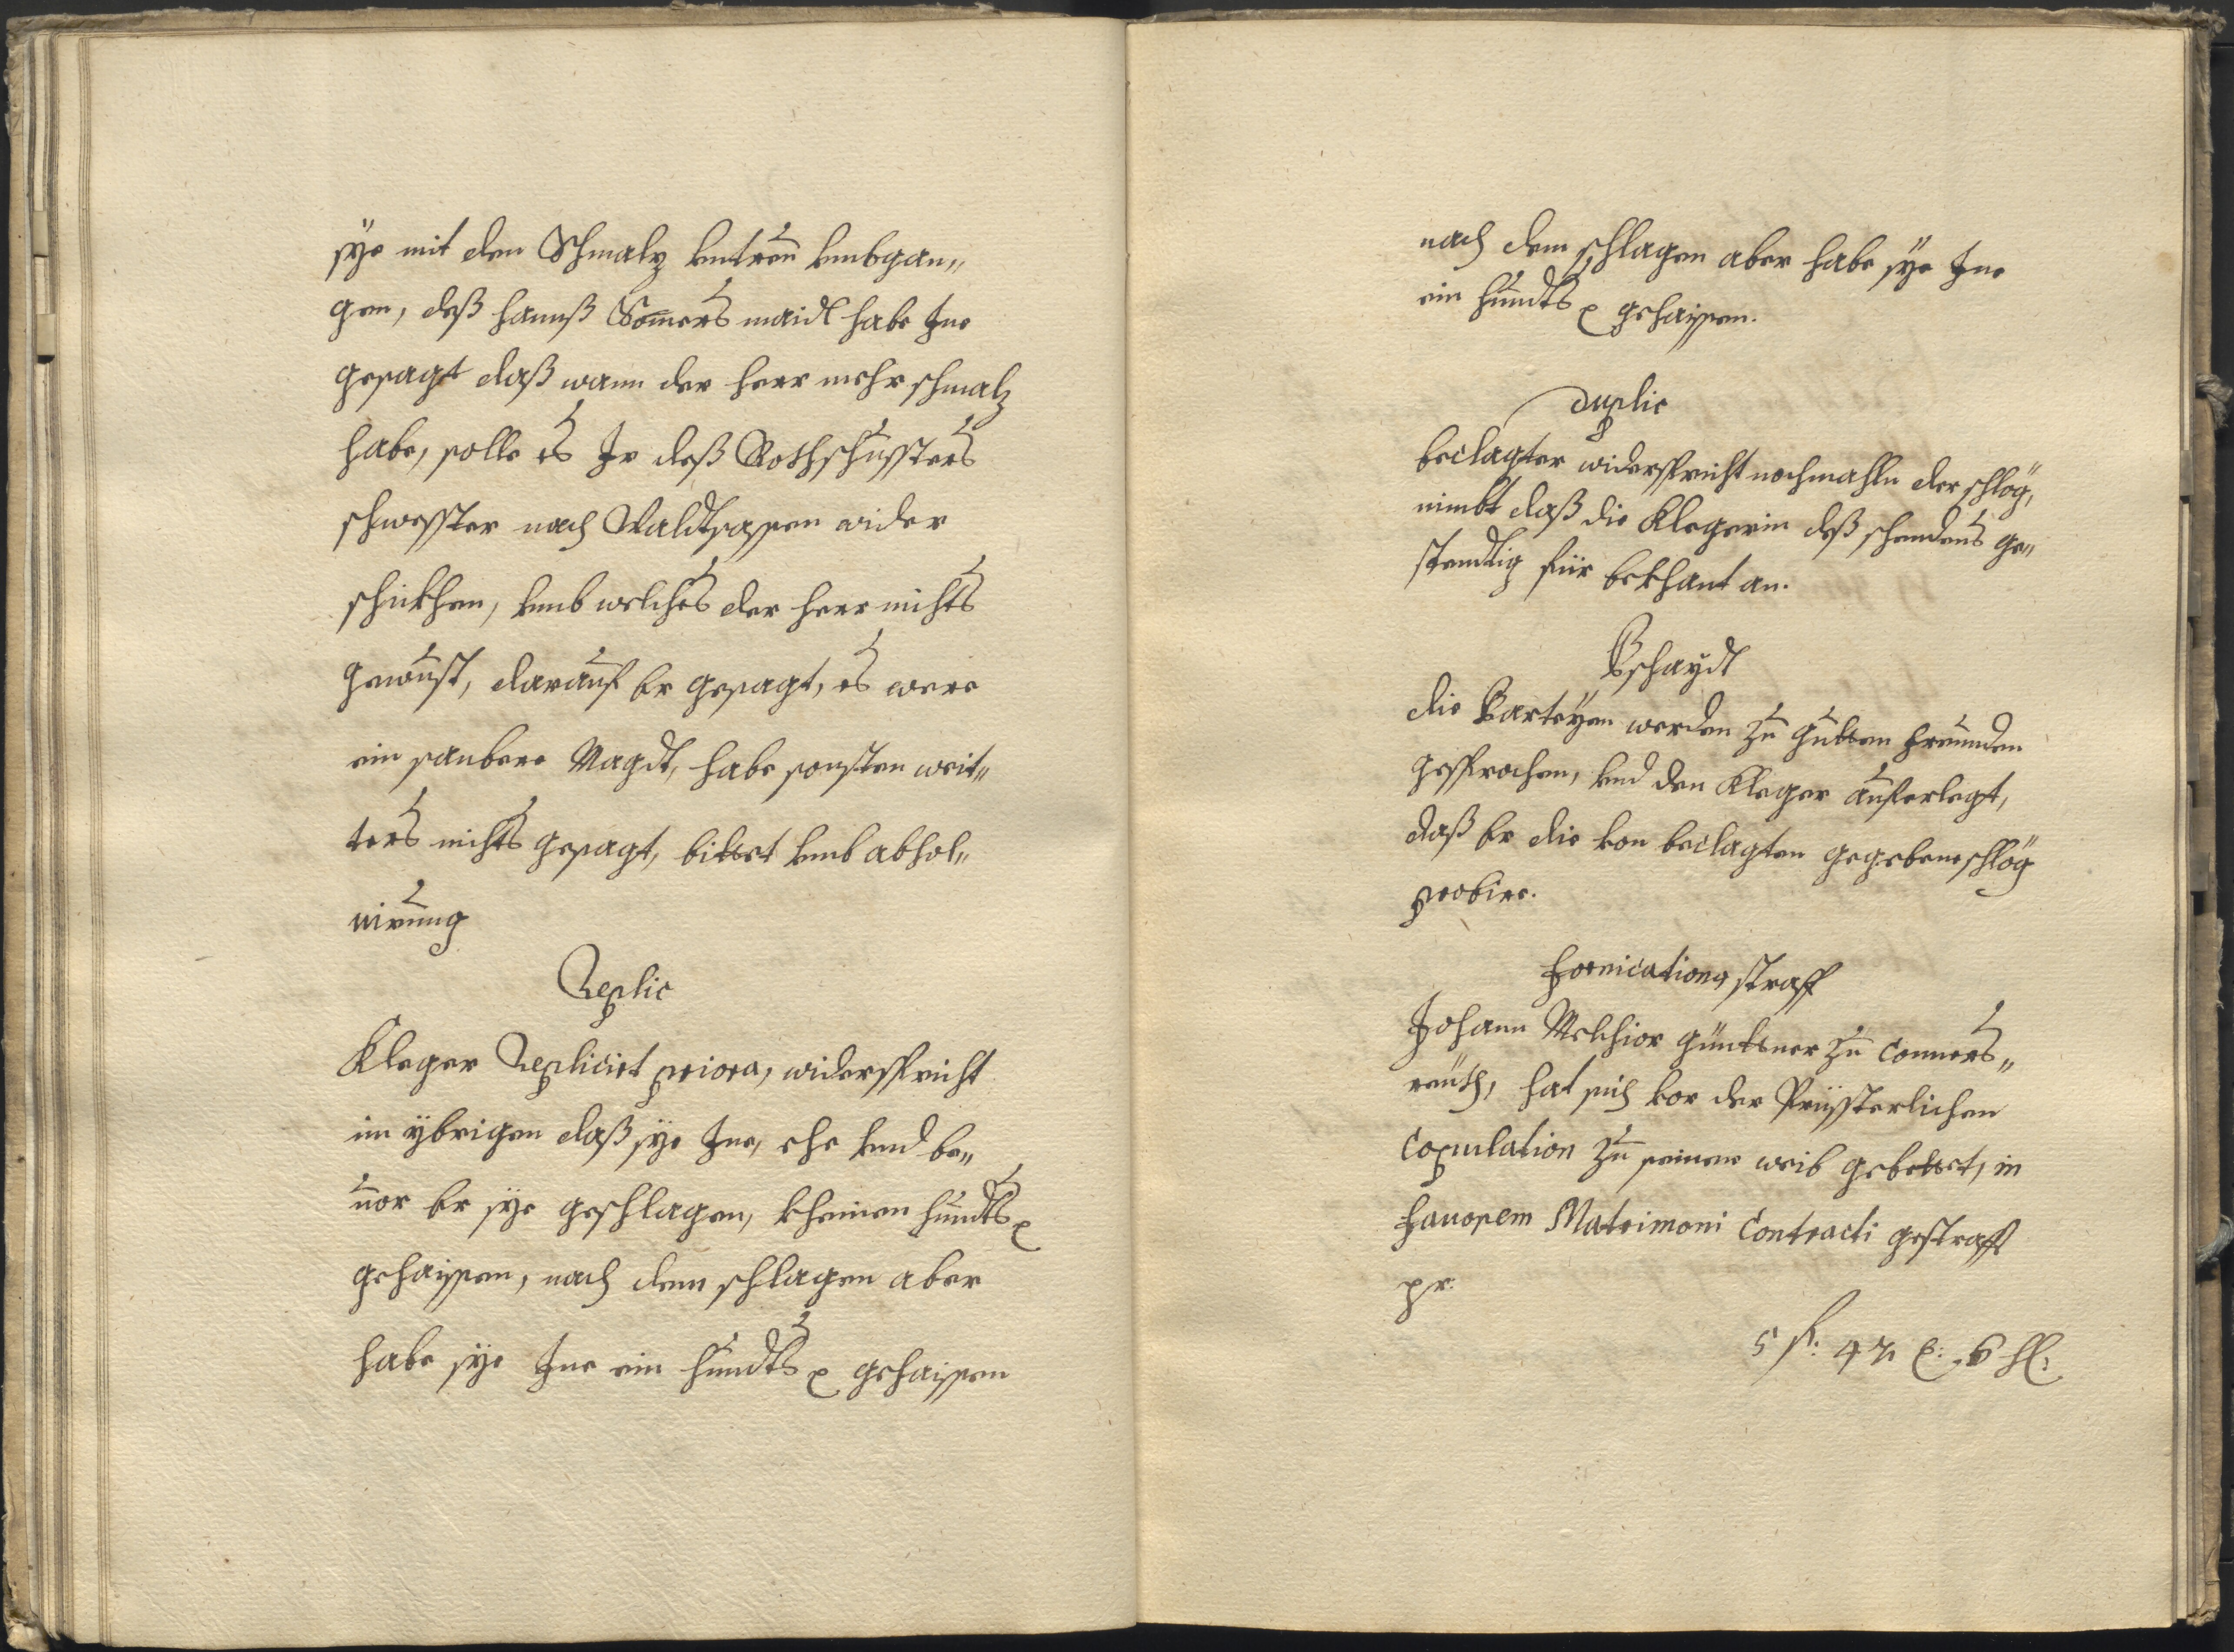 sÿe mit dem Schmalz vntreu vmbgan„
gen, deß hannß Somers maidl habe Jne
gesagt daß wann der herr mehr schmalz
habe, solle es Jr deß Rothschussters
schwesster nach Waldtsassen wider
schickhen, vmb welches der herr nichts
gewust, darauf Er gesagt, es were
ein saubere Magdt, habe sonsten weit„
ters nichts gesagt, bittet vmb absol„
uirung
Replic
Kleger Replicirt priora, widerspricht
im ÿbrigen daß sÿe Jne, ehe vnd be„
uor Er sÿe geschlagen, kheinen hundts
gehaissen, nach dem schlagen aber
habe sÿe Jne ein hundts gehaissen
nach dem schlagen aber habe sÿe Jne
ein hundts gehaissen.
Duplic
beclagter widerspricht nochmahln der schlög,
nimbt daß die Klegerin deß schendens ge„
stendtig für bekhant an.
Bschaydt
die Parteÿen werden zu gutten freunden
gesprochen, vnd den Kleger auferlegt,
daß Er die von beclagten gegebene schlög
probire.
Fornications straff
Johann Melchior Günttner zu Conners„
reuth, hat sich vor der Priessterlichen
Copulation zu seinem weib gebettet, in
fauorem Matrimoni Contracti gestrafft
pr.
5 fl: 42 x: 6 hl: